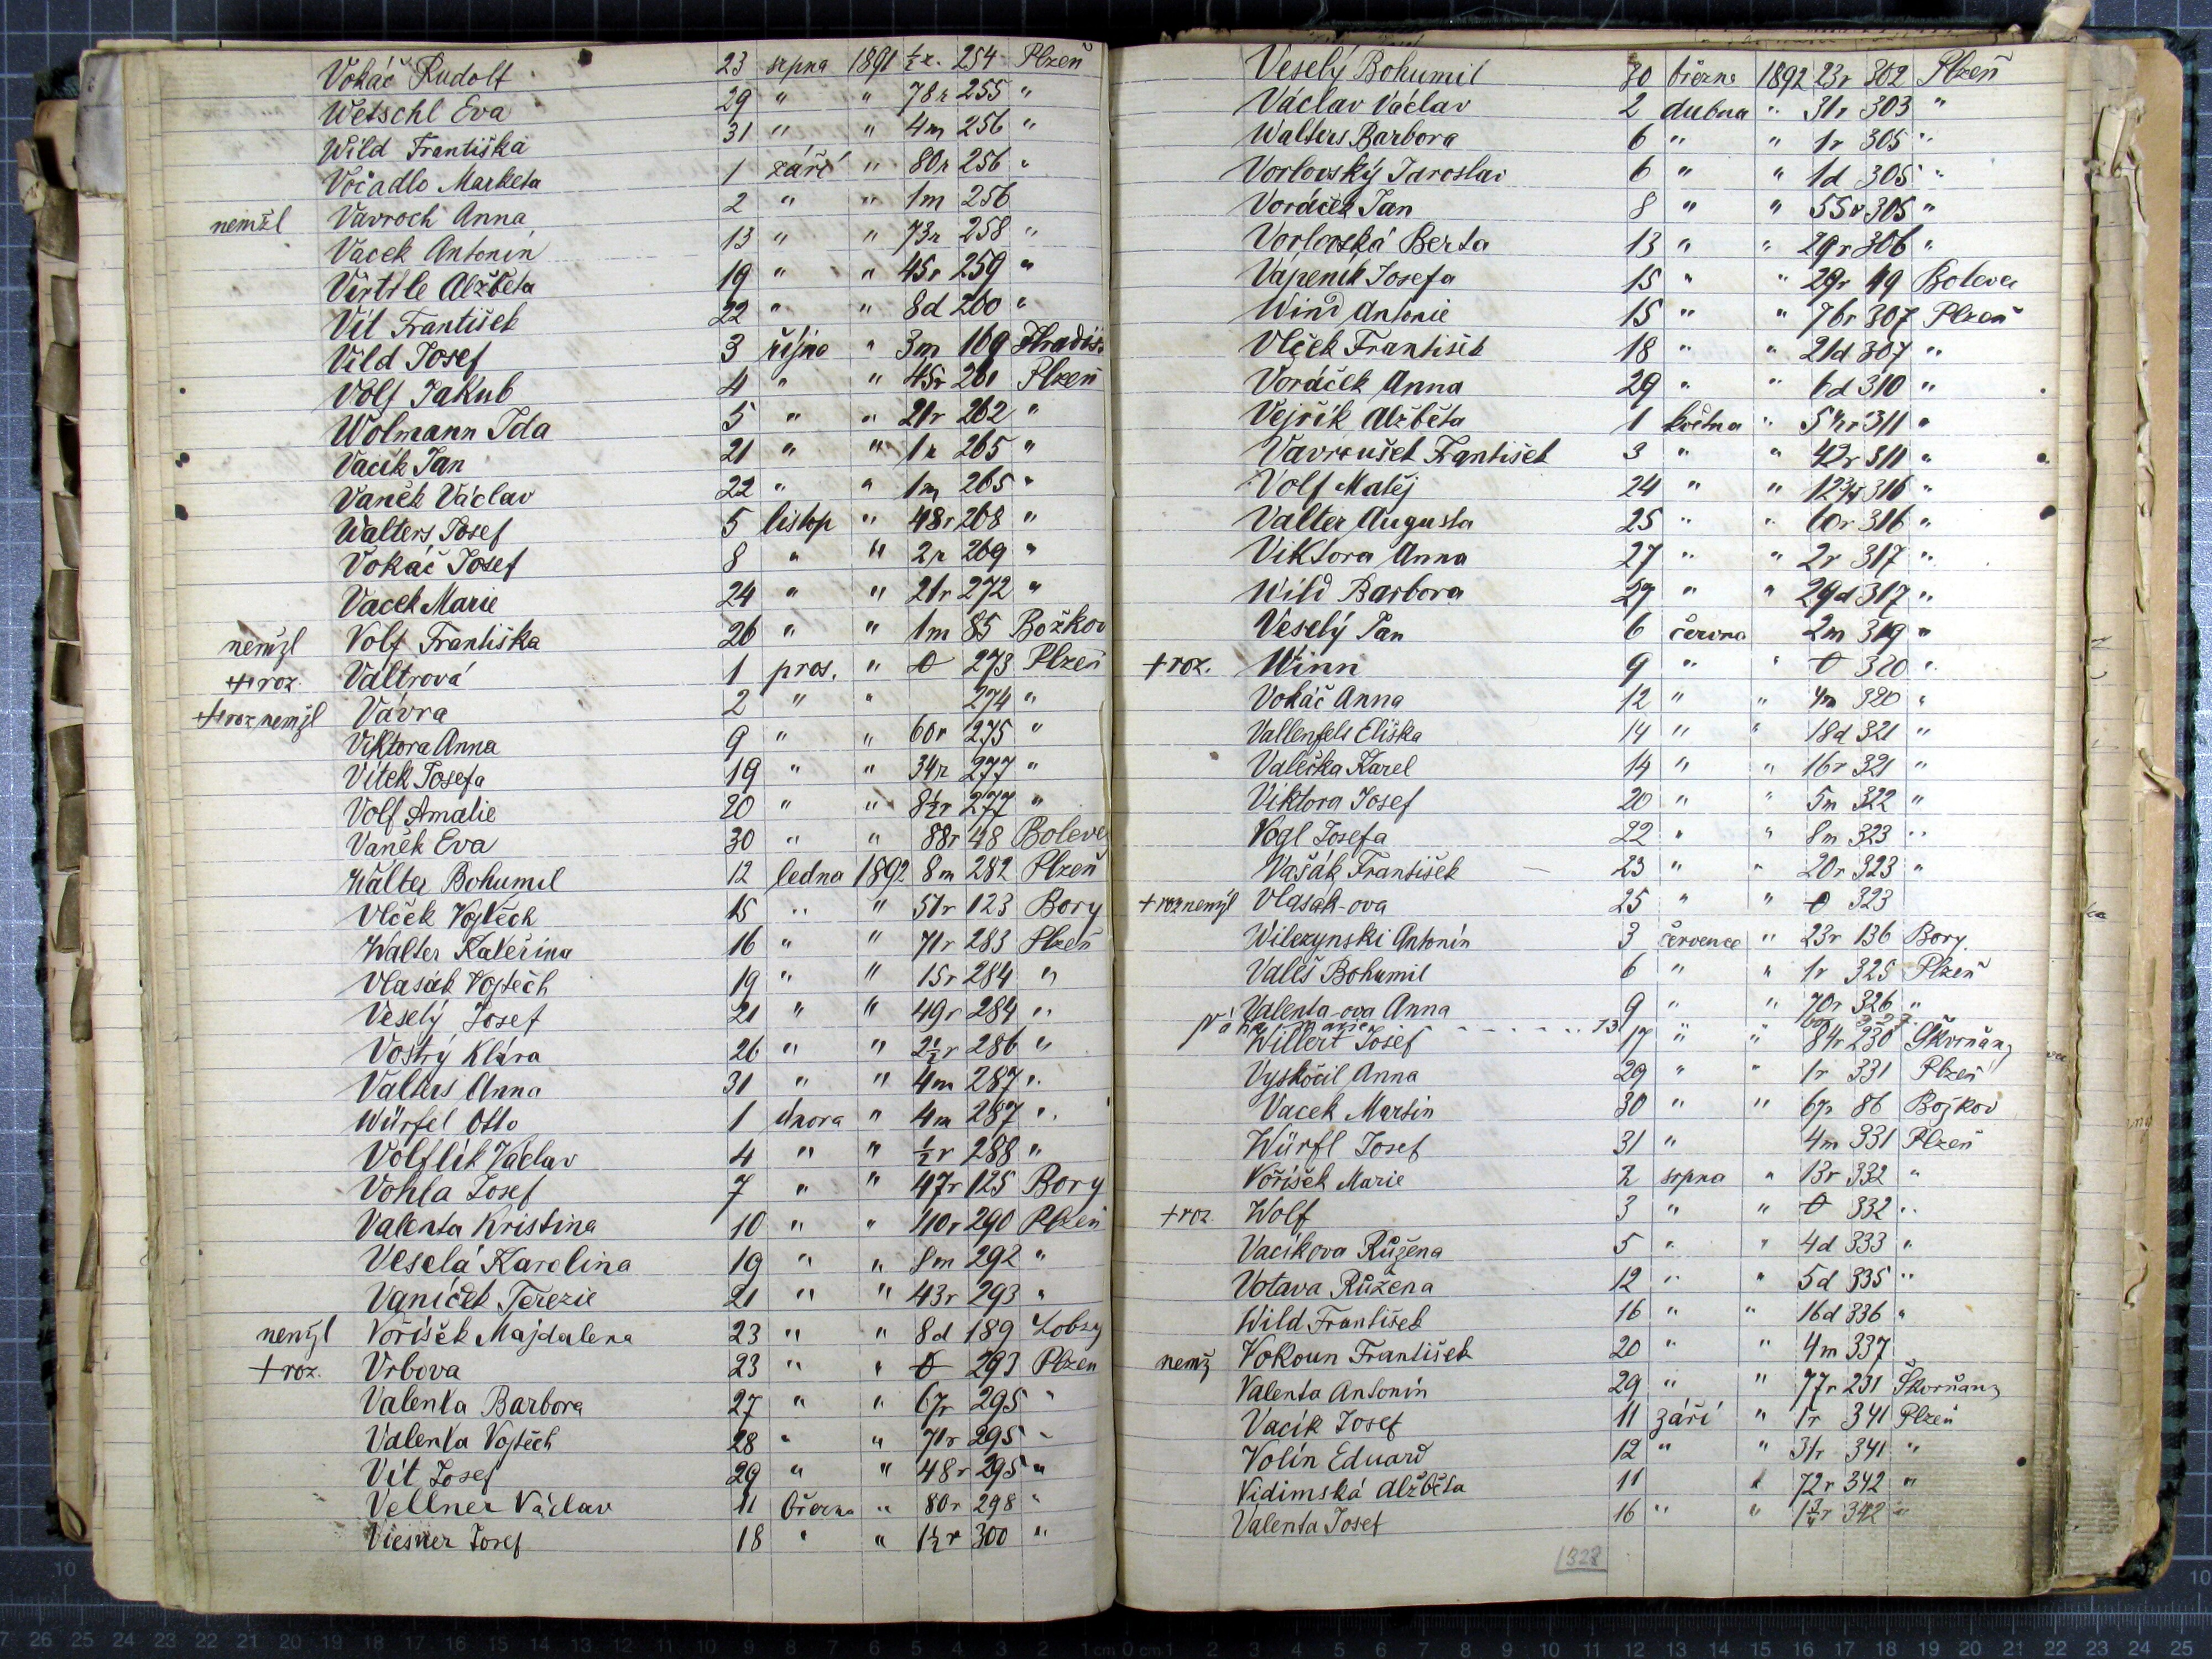 Vokáč Rudolf 23 srpna 1891 ½r. 254 Plzeň
Wetschl Eva 29 " " 78r 255 "
Wild Františka 31 " " 4m 256 "
Vočadlo Marketa 1 září " 80r 256 "
nemžl Vavroch Anna 2 " " 1m 256
Vacek Antonín 13 " " 73r 258 "
Virtile Alžběta 19 " " 45r 259 "
Vít František 22 " " 8d 260 "
Vild Josef 3 října " 3m 169 Hradiš.
Volf Jakub 4 " " 45r 261 Plzeň
Wolmann Ida 5 " " 21r 262 "
Vacík Jan 21 " " 1r 265 "
Vaněk Václav 22 " " 1m 265 "
Walters Josef 5 listop " 48r 268 "
Vokáč Josef 8 " " 2r 269 "
Vacek Marie 24 " " 21r 272 "
nemžl Volf Františka 26 " " 1m 85 Božkov
+ roz. Valtrová 1 pros. " 0 273 Plzeň
+ roz nemžl Vávra 2 " " 274 "
Viktora Anna 9 " " 60r 275 "
Vítek Josefa 19 " " 34r 277 "
Volf Amalie 20 " " 8½r 277 "
Vaněk Eva 30 " " 88r 48 Bolevec
Walter Bohumil 12 ledna 1892 8m 282 Plzeň
Vlček Vojtěch 15 " " 51r 123 Bory
Walter Kateřina 16 " " 71r 283 Plzeň
Vlasák Vojtěch 19 " " 15r 284 "
Veselý Josef 21 " " 49r 284 "
Vostrý Klára 26 " " 2½r 286 "
Valters Anna 31 " " 4m 287 "
Würfel Otto 1 února " 4m 287 "
Volflík Václav 4 " " ½r 288 "
Vohla Josef 7 " " 47r 125 Bory
Valenta Kristina 10 " " 40r 290 Plzeň
Veselá Karolina 19 " " 8m 292 "
Vaníček Terezie 21 " " 43r 293 "
nemžl Voříšek Majdalena 23 " " 8d 189 Lobzy
+ roz. Vrbova 23 " " 0 293 Plzen
Valenta Barbora 27 " " 67r 295 "
Valenta Vojtěch 28 " " 71r 295 "
Vít Josef 29 " " 48r 295 "
Vellner Václav 11 března " 80r 298 "
Viesner Josef 18 " " 1½r 300 "
Veselý Bohumil 30 března 1892 23r 302 Plzeň
Václav Václav 2 dubna " 31r 303 "
Walters Barbora 6 " " 1r 305 "
Vorlovský Jaroslav 6 " " 1d 305 "
Voráček Jan 8 " " 55r 305 "
Vorlovská Berta 13 " " 29r 306 "
Vápeník Josefa 15 " " 29r 49 Bolevec
Wind Antonie 15 " " 76r 307 Plzeň
Vlček František 18 " " 21d 307 "
Voráček Anna 29 " " 6d 310 "
Vejřík Alžběta 1 května " 5½r 311 "
Vavroušek František 3 " " 42r 311 "
Volf Matěj 24 " " 316 "
Valter Augusta 25 " " 60r 316 "
Viktora Anna 27 " " 2r 317 "
Wild Barbora 29 " " 29d 317 "
Veselý Jan 6 června 2m 319 "
+ roz. Winn 9 " " 0 320 "
Vokáč Anna 12 " " 4m 320 "
Vallenfels Eliška 14 " " 18d 321 "
Valečka Karel 14 " " 16r 321 "
Viktora Josef 20 " " 5m 322 "
Vogl Josefa 22 " " 8m 323 "
Vašák František 23 " " 20r 323 "
+ roz nemžl Vlasák-ova 25 " " 0 323
Wilczynski Antonín 3 července " 23r 136 Bory
Valeš Bohumil 6 " " 1r 325 Plzeň
Valenta-ova Anna 9 " " 70r 326 "
Váňa Marie 13 327
Willert Josef 17 " " 84r 230 Škvrňany
Vyskočil Anna 29 " " 1r 331 Plzeň
Vacek Martin 30 " " 67r 86 Božkov
Würfl Josef 31 " 4m 331 Plzeň
Voříšek Marie 2 srpna " 13r 332 "
+ roz. Wolf 3 " " 0 332 "
Vacíkova Růžena 5 " " 4d 333 "
Votava Růžena 12 " " 5d 335 "
Wild František 16 " " 16d 336 "
nemž Vokoun František 20 " " 4m 337
Valenta Antonín 29 " " 77r 231 Škvrňany
Vacík Josef 11 září " 1r 341 Plzeň
Volín Eduard 12 " " 31r 341 "
Vidimská Alžběta 11 " 72r 342 "
Valenta Josef 16 " " 1¾r 342 "
1328